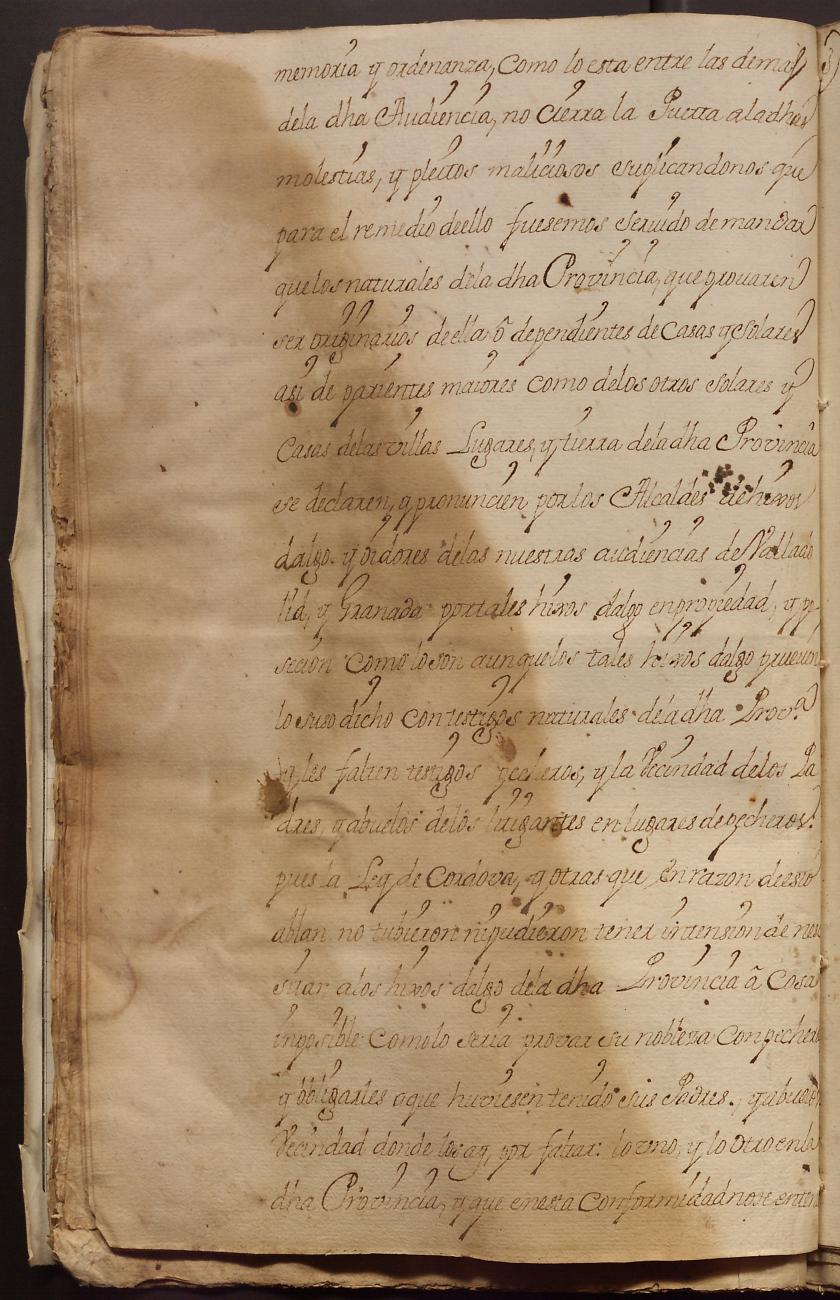 memoria y ordenanza, como lo esta entre las demas
dela dha Audiencia, no cierra la Puerta aladhas
molestias, y pleitos maliciosos suplicandonos que
para el remedio deello fuesemos seruido de mandar
que los naturales dela dha Provincia, que provaren
ser originarios deella ô dependientes de Casas y Solares
asi de parientes maiores como delos otros solares y
Casas delas villas Lugares, y tierra dela dha Provincia
se declaren, y pronuncien por los Alcaldes de hixos
dalgo. y oidores delas nuestras audiencias de Vallado
lid, y Granada por tales hixos dalgo en propiedad, y po
secion como lo son aunquelos tales hixos dalgo prueuen
lo suso dicho con testigos naturales dela dha Prov.ª
y les falten testigos pecheros, y la Vecindad de los Pa
dres, y abuelos delos litigantes en lugares de pecheros:
pues la Ley de Cordova, y otras que en razon deesto
ablan no tubieron ni pudieron tener intension de nes
situar alos hixos dalgo dela dha Provincia â Cosa
imposible como lo seria provar su nobleza con pechero
y obligarles aque huviesen tenido sus Padres, y abuelos
Vecindad donde los ay, por faltar lo vno, y lo otro en la
dha Provincia, y que enesta Conformidad nose enten